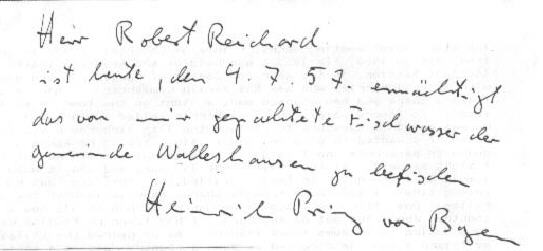 Herr Robert Reichard
ist heute, den 4. 7. 57. ermächtigt
das von mir gepachtete Fischwasser der
gemeinde Walleshausen zu befischen
Heinrich Prinz von Bayern